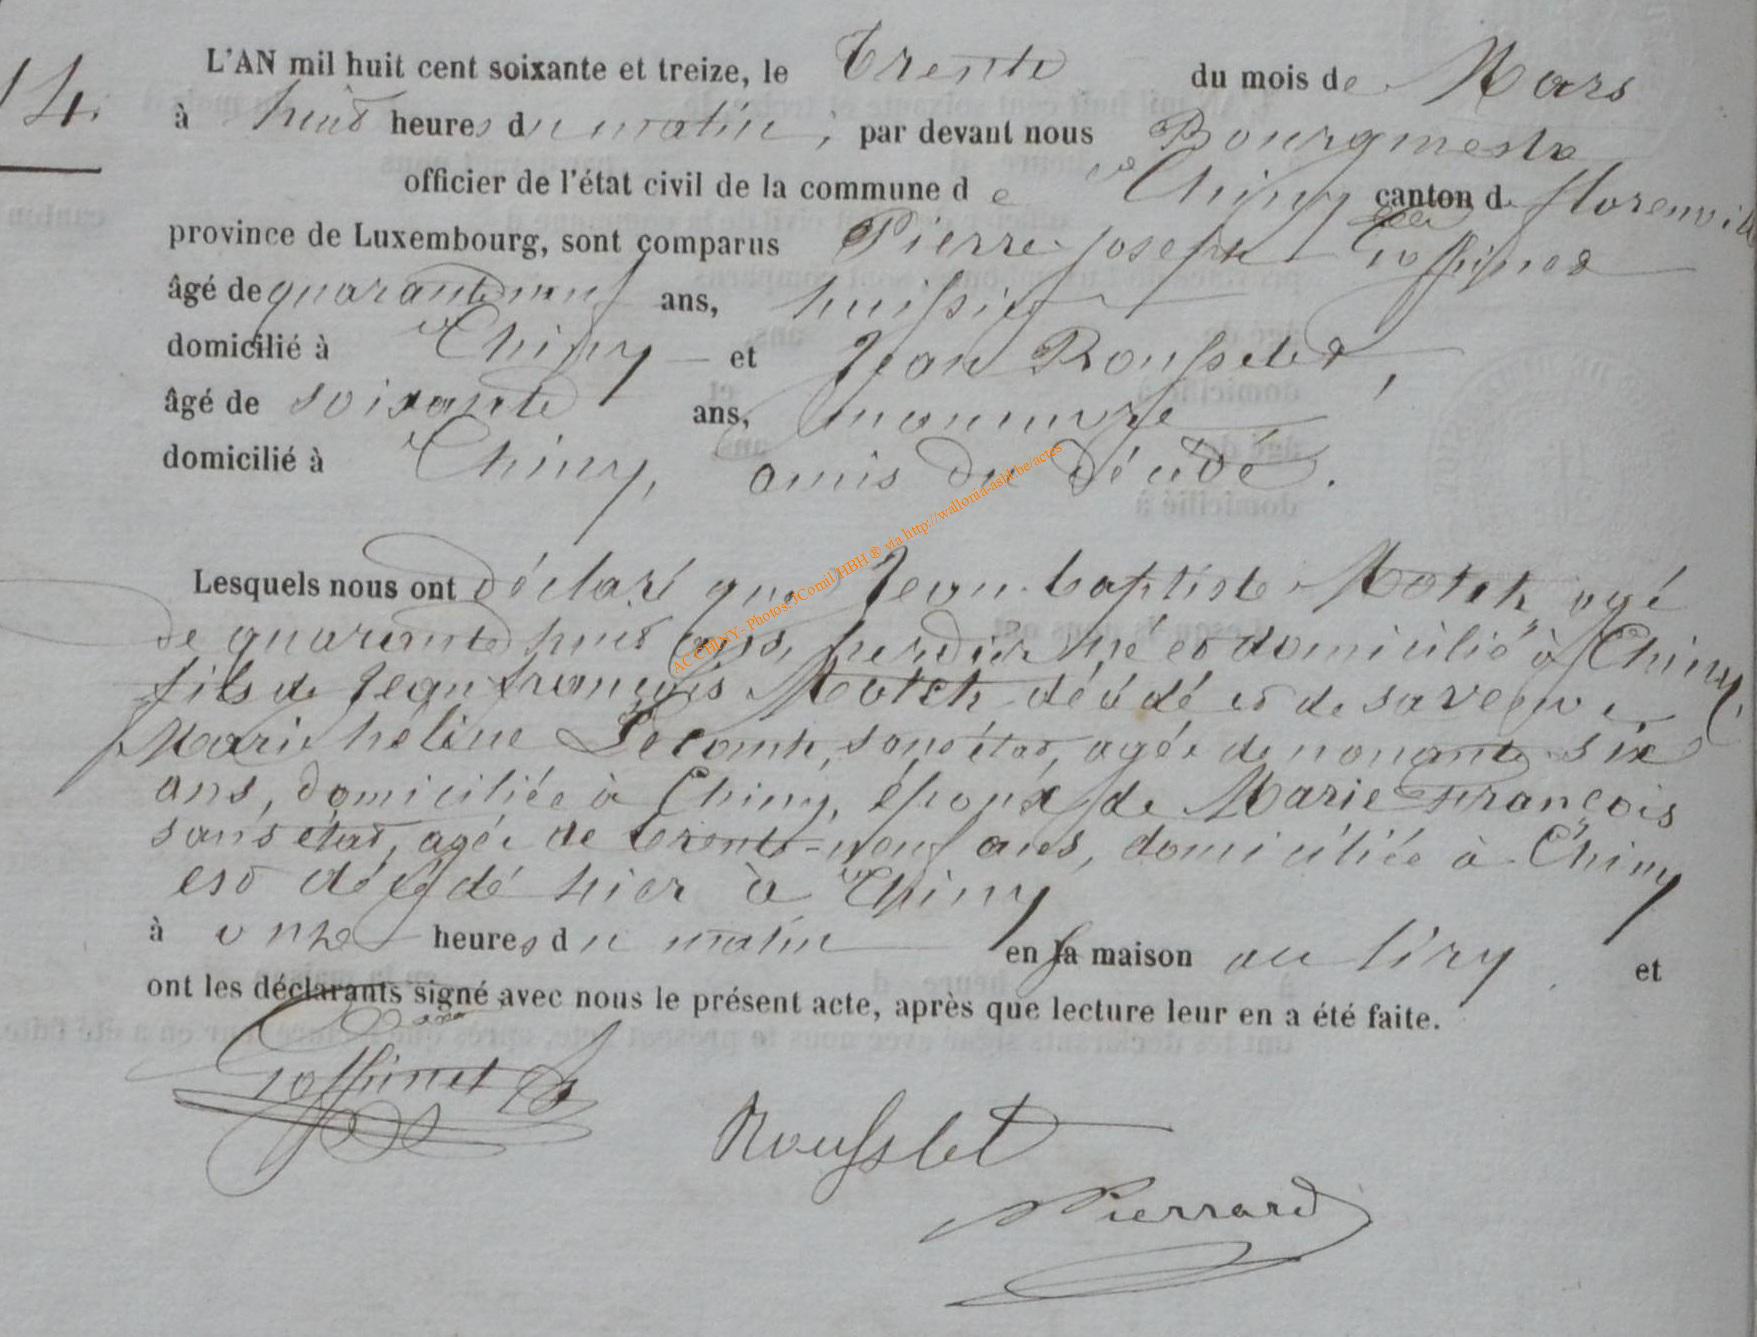 14.
L'AN mil huit cent soixante et treize, le trente du mois de Mars
à huit heures du matin, par devant nous Bourgmestre
officier de l'état civil de la commune de Chiny canton de florenville
province de Luxembourg, sont comparus Pierre joseph Goffinet
âgé de quarante neuf ans, huissier
domicilié à Chiny et Jean Rousselet,
âgé de soixante ans, manœuvre
domicilié à Chiny, amis du décédé.
Lesquels nous ont déclaré que Jean-baptiste Motch agé
de quarante huit ans, herdier né et domicilié à Chiny,
fils de Jean françois Motch décédé et de sa veuve
Marie hélène Lecomte, sans état, agée de nonante-six
ans, domiciliée à Chiny, époux de Marie François
sans état, agée de trente-neuf ans, domiciliée à Chiny
est décédé hier à Chiny
à onze heures du matin en sa maison au tiry et
ont les déclarants signé avec nous le présent acte, après que lecture leur en a été faite.
Goffinet
Rousslet
Pierrard
AC CHINY- Photos: JComil HBH ® via http://wallonia-asbl.be/actes